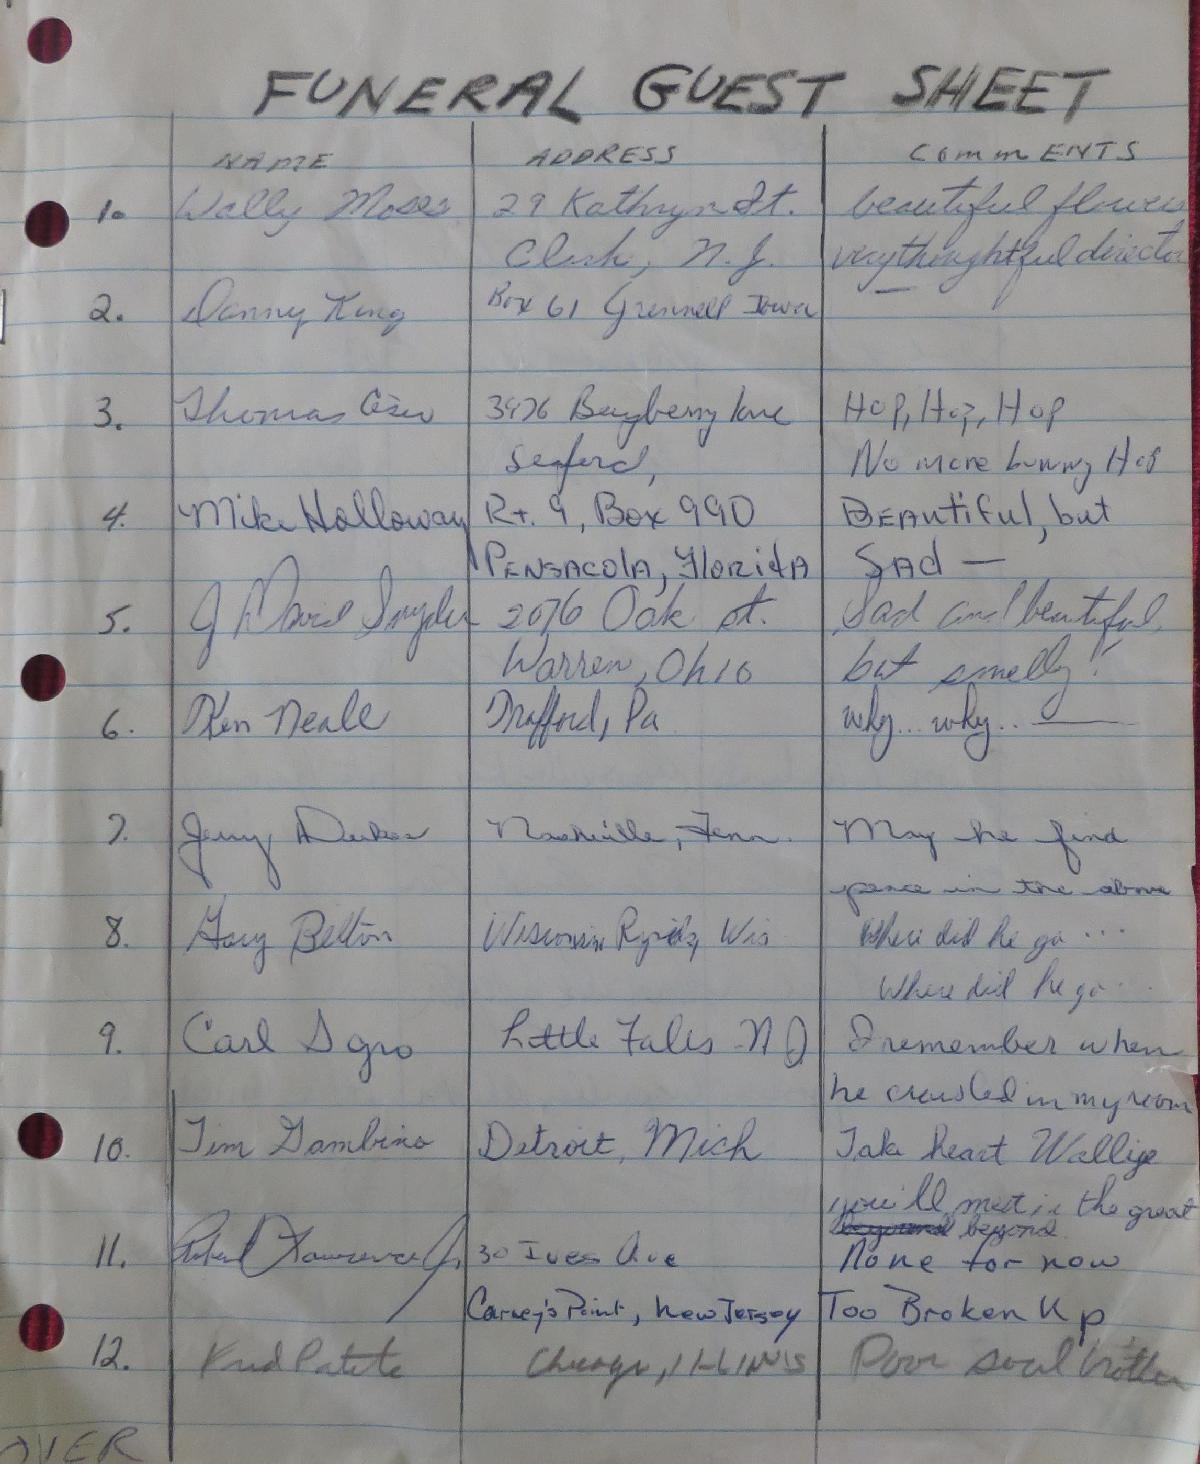 FUNERAL GUEST SHEET
NAME ADDRESS COMMENTS
1. Wally Moses 29 Kathryn St. beautiful flowers
Clark, N.J. very thoughtful director
2. Danny King Box 61 Grinnell Iowa
3. Thomas 3476 Bayberry lane Hop, Hop, Hop
Seaford, No more bunny Hop
4. Mike Holloway Rt. 9, Box 990 BEAutiful, but
PENSACOLA, FloridA SAd —
5. J David Snyder 2076 Oak st. Sad and beautiful,
Warren, Ohio but smelly!
6. Ken Neale Trafford, Pa why... why...
7. Jerry Nashville, Tenn. May he find
peace in the above
8. Gary Belton Wisconsin Rapids, Wis Where did he go ...
Where did he go ...
9. Carl Sgro Little Falls NJ I remember when
he crawled in my room
10. Tim Gambino Detroit, Mich Take heart
you'll meet in the great
beyond
11. Robert Lawrence Jr. 30 Ives Ave None for now
Carney's Point, New Jersey Too Broken Up
12. Chicago, ILLINOIS Poor soul brother
OVER